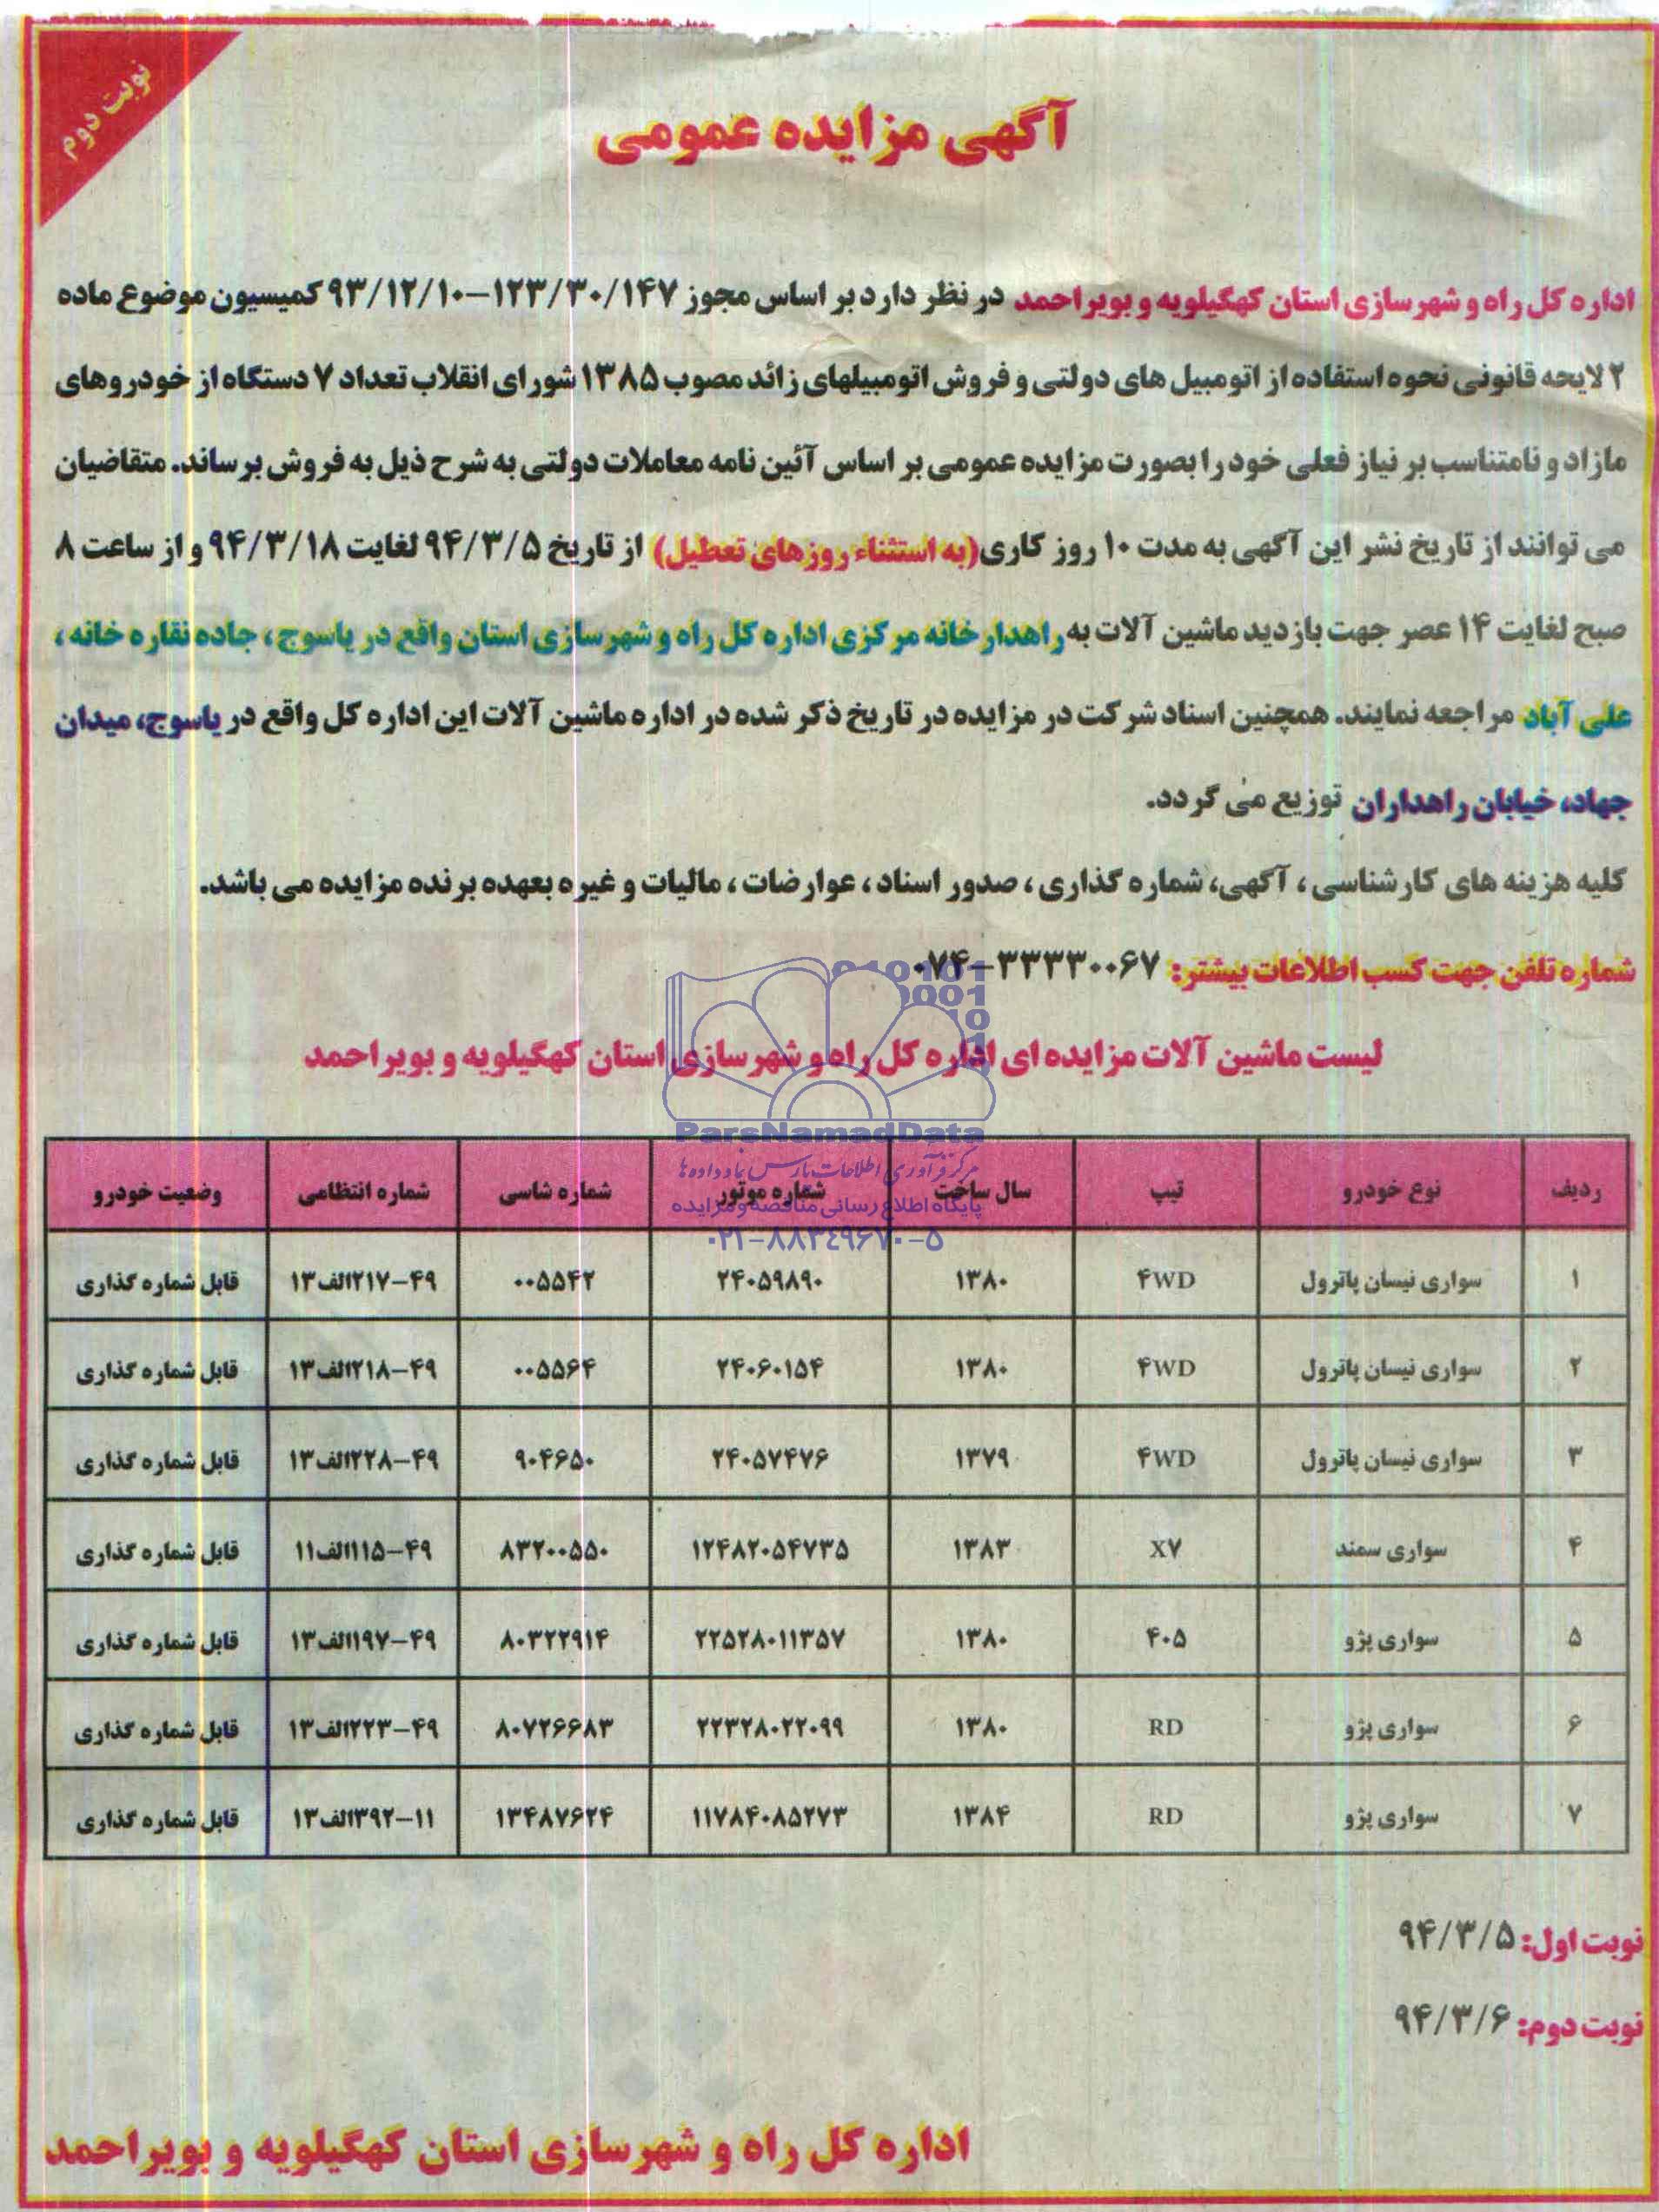 نوبت دوم
آگهی مزایده عمومی
اداره کل راه و شهرسازی استان کهگیلویه و بویراحمد در نظر دارد بر اساس مجوز ۱۲۳/۳۰/۱۴۷-۹۳/۱۲/۱۰ کمیسیون موضوع ماده
۲ لایحه قانونی نحوه استفاده از اتومبیل های دولتی و فروش اتومبیلهای زائد مصوب ۱۳۸۵ شورای انقلاب تعداد ۷ دستگاه از خودروهای
مازاد و نامتناسب بر نیاز فعلی خود را بصورت مزایده عمومی بر اساس آئین نامه معاملات دولتی به شرح ذیل به فروش برساند. متقاضیان
می توانند از تاریخ نشر این آگهی به مدت ۱۰ روز کاری (به استثناء روزهای تعطیل) از تاریخ ۹۴/۳/۵ لغایت ۹۴/۳/۱۸ و از ساعت ۸
صبح لغایت ۱۴ عصر جهت بازدید ماشین آلات به راهدارخانه مرکزی اداره کل راه و شهرسازی استان واقع در یاسوج ، جاده نقاره خانه ،
علی آباد مراجعه نمایند. همچنین اسناد شرکت در مزایده در تاریخ ذکر شده در اداره ماشین آلات این اداره کل واقع در یاسوج، میدان
جهاد، خیابان راهداران توزیع می گردد.
کلیه هزینه های کارشناسی ، آگهی، شماره گذاری ، صدور اسناد ، عوارضات ، مالیات و غیره بعهده برنده مزایده می باشد.
شماره تلفن جهت کسب اطلاعات بیشتر: ۰۷۴-۳۳۳۳۰۰۶۷
لیست ماشین آلات مزایده ای اداره کل راه و شهرسازی استان کهگیلویه و بویراحمد
ParsNamadData
مرکز فرآوری اطلاعات پارس نماد داده ها
پایگاه اطلاع رسانی مناقصه و مزایده
۰۲۱-۸۸۳۴۹۶۷۰-۵
ردیف نوع خودرو تیپ سال ساخت شماره موتور شماره شاسی شماره انتظامی وضعیت خودرو
۱ سواری نیسان پاترول ۴WD ۱۳۸۰ ۲۴۰۵۹۸۹۰ ۰۰۵۵۴۲ ۴۹-۲۱۷الف۱۳ قابل شماره گذاری
۲ سواری نیسان پاترول ۴WD ۱۳۸۰ ۲۴۰۶۰۱۵۴ ۰۰۵۵۶۴ ۴۹-۲۱۸الف۱۳ قابل شماره گذاری
۳ سواری نیسان پاترول ۴WD ۱۳۷۹ ۲۴۰۵۷۴۷۶ ۹۰۴۶۵۰ ۴۹-۲۲۸الف۱۳ قابل شماره گذاری
۴ سواری سمند X۷ ۱۳۸۳ ۱۲۴۸۲۰۵۴۷۳۵ ۸۳۲۰۰۵۵۰ ۴۹-۱۱۵الف۱۱ قابل شماره گذاری
۵ سواری پژو ۴۰۵ ۱۳۸۰ ۲۲۵۲۸۰۱۱۳۵۷ ۸۰۳۲۲۹۱۴ ۴۹-۱۹۷الف۱۳ قابل شماره گذاری
۶ سواری پژو RD ۱۳۸۰ ۲۲۳۲۸۰۲۲۰۹۹ ۸۰۷۲۶۶۸۳ ۴۹-۲۲۳الف۱۳ قابل شماره گذاری
۷ سواری پژو RD ۱۳۸۴ ۱۱۷۸۴۰۸۵۲۷۳ ۱۳۴۸۷۶۲۴ ۱۱-۳۹۲الف۱۳ قابل شماره گذاری
نوبت اول: ۹۴/۳/۵
نوبت دوم: ۹۴/۳/۶
اداره کل راه و شهرسازی استان کهگیلویه و بویراحمد